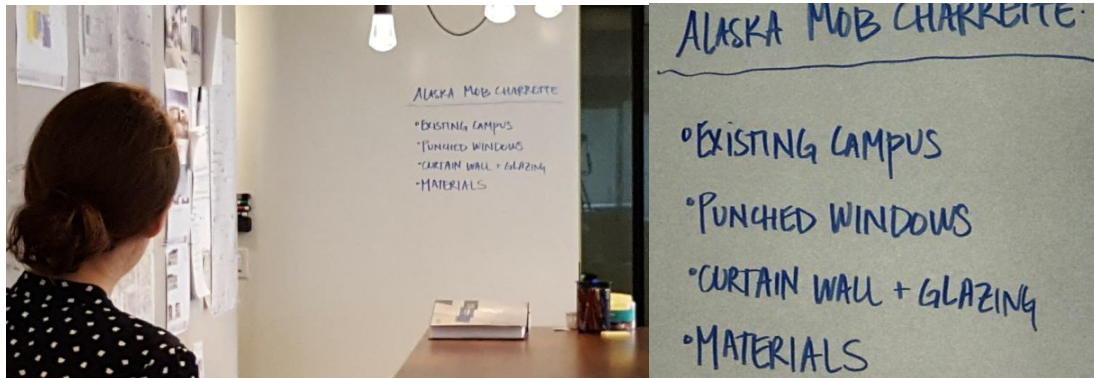 ALASKA MOB CHARRETTE
•EXISTING CAMPUS
•PUNCHED WINDOWS
•CURTAIN WALL + GLAZING
•MATERIALS
ALASKA MOB CHARRETTE.
•EXISTING CAMPUS
•PUNCHED WINDOWS
•CURTAIN WALL + GLAZING
•MATERIALS